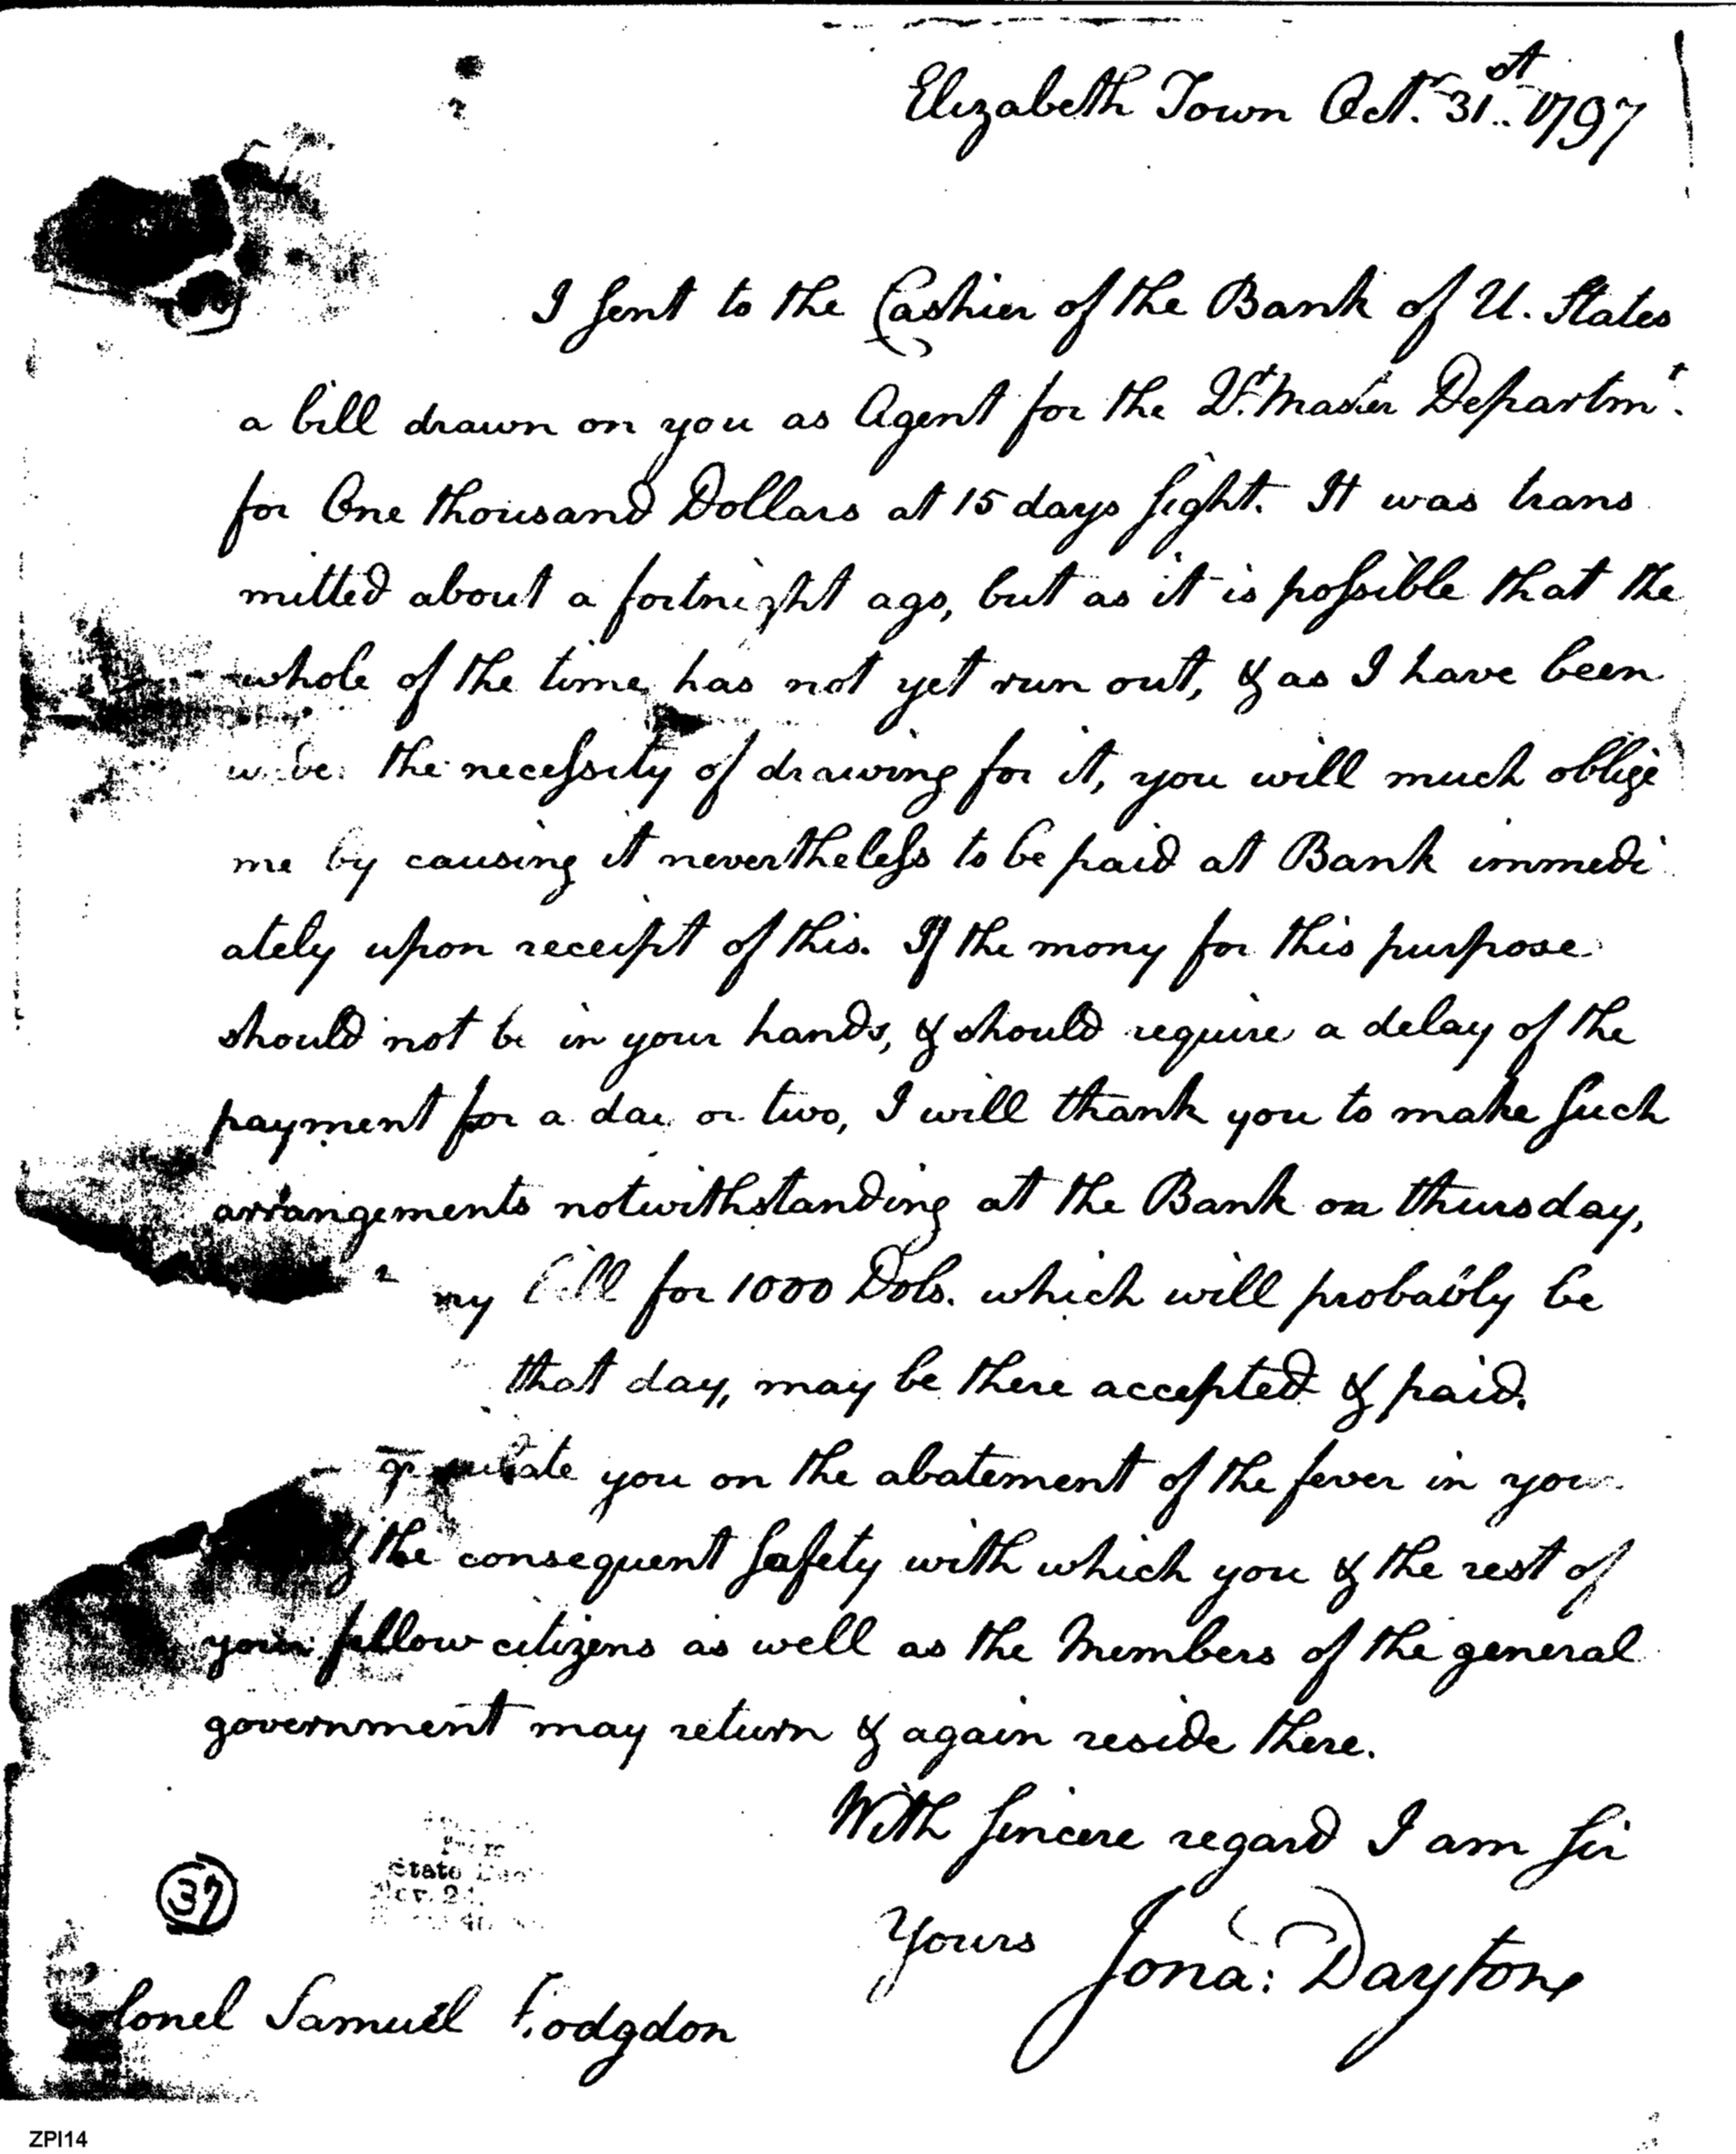 Elizabeth Town Octr. 31st. 1797
I sent to the Cashier of the Bank of U. States
a bill drawn on you as Agent for the Qr. Master Departmt.
for One thousand Dollars at 15 days sight. It was trans
mitted about a fortnight ago, but as it is possible that the
whole of the time has not yet run out, & as I have been
the necessity of drawing for it, you will much oblige
me by causing it nevertheless to be paid at Bank immedi
ately upon receipt of this. If the mony for this purpose
should not be in your hands, & should require a delay of the
payment for a day or two, I will thank you to make such
arrangements notwithstanding at the Bank on thursday,
my bill for 1000 Dols. which will probably be
that day, may be there accepted & paid.
you on the abatement of the fever in your
the consequent safety with which you & the rest of
your fellow citizens as well as the Members of the general
government may return & again reside there.
With sincere regard I am Sir
Yours Jona: Dayton
37
State
lonel Samuel Hodgdon
ZPI14